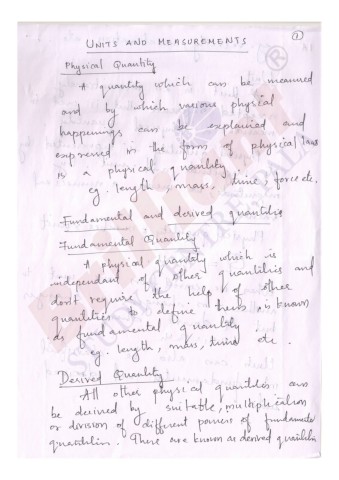 UNITS AND MEASUREMENTS
1
Physical Quantity
A quantity which can be measured
and by which various physical
happenings can be explained and
expressed in the form of physical laws
is a physical quantity.
eg. length, mass, time, force etc.
Fundamental and derived quantities
Fundamental Quantity
A physical quantity which is
independant of other quantities and
don't require the help of other
quantities to define them, is known
as fundamental quantity.
eg. length, mass, time etc.
Derived Quantity
All other physical quantities can
be derived by suitable, multiplication
or division of different powers of fundamental
quantities. These are known as derived quantities